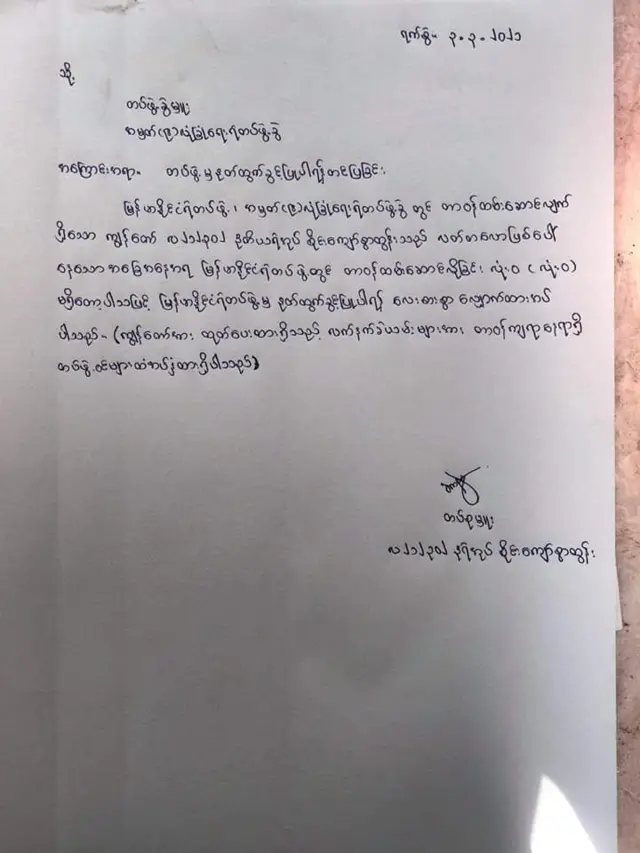 ရက်စွဲ- ၃.၃.၂၀၂၁
သို့
တပ်ဖွဲ့ခွဲမှူး
အမှတ်(၉)လုံခြုံရေးရဲတပ်ဖွဲ့ခွဲ
အကြောင်းအရာ။ တပ်ဖွဲ့မှနုတ်ထွက်ခွင့်ပြုပါရန်တင်ပြခြင်း၊
မြန်မာနိုင်ငံရဲတပ်ဖွဲ့၊ အမှတ်(၉)လုံခြုံရေးရဲတပ်ဖွဲ့ခွဲ တွင် တာဝန်ထမ်းဆောင်လျက်
ရှိသော ကျွန်တော် ဒုတိယရဲအုပ် စိုင်းကျော်စွာထွန်းသည် လတ်တလောဖြစ်ပေါ်
နေသော အခြေအနေအရ မြန်မာနိုင်ငံရဲတပ်ဖွဲ့တွင် တာဝန်ထမ်းဆောင်လိုခြင်း လုံးဝ (လုံးဝ)
မရှိတော့ပါသဖြင့် မြန်မာနိုင်ငံရဲတပ်ဖွဲ့မှ နုတ်ထွက်ခွင့်ပြုပါရန် လေးစားစွာ လျှောက်ထားအပ်
ပါသည်။ (ကျွန်တော်အား ထုတ်ပေးထားရှိသည့် လက်နက်ခဲယမ်းများအား တာဝန်ကျရာနေရာရှိ
တပ်ဖွဲ့ဝင်များထံအပ်နှံထားရှိပါသည်)
တပ်စုမှူး
ဒုရဲအုပ် စိုင်းကျော်စွာထွန်း